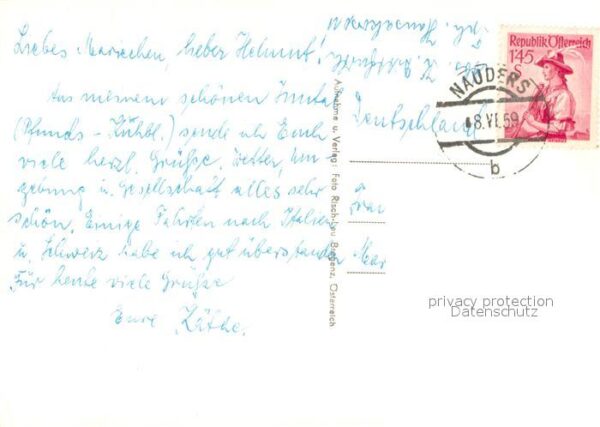 Liebes Mariechen, lieber Helmut!
Aus meinem schönen
(Pfunds - ) sende ich Euch
viele herzl. Grüße. Wetter, Um-
gebung u. Gesellschaft alles sehr
schön. Einige Fahrten nach Italien
u. Schweiz habe ich gut überstanden.
Für heute viele Grüße
Eure Käthe.
Aufnahme u. Verlag: Foto Risch-Lau Bregenz, Österreich
Deutschland
Frau
Mar
Republik Österreich
1'45
S
NAUDERS
8.VI.59
b
privacy protection
Datenschutz